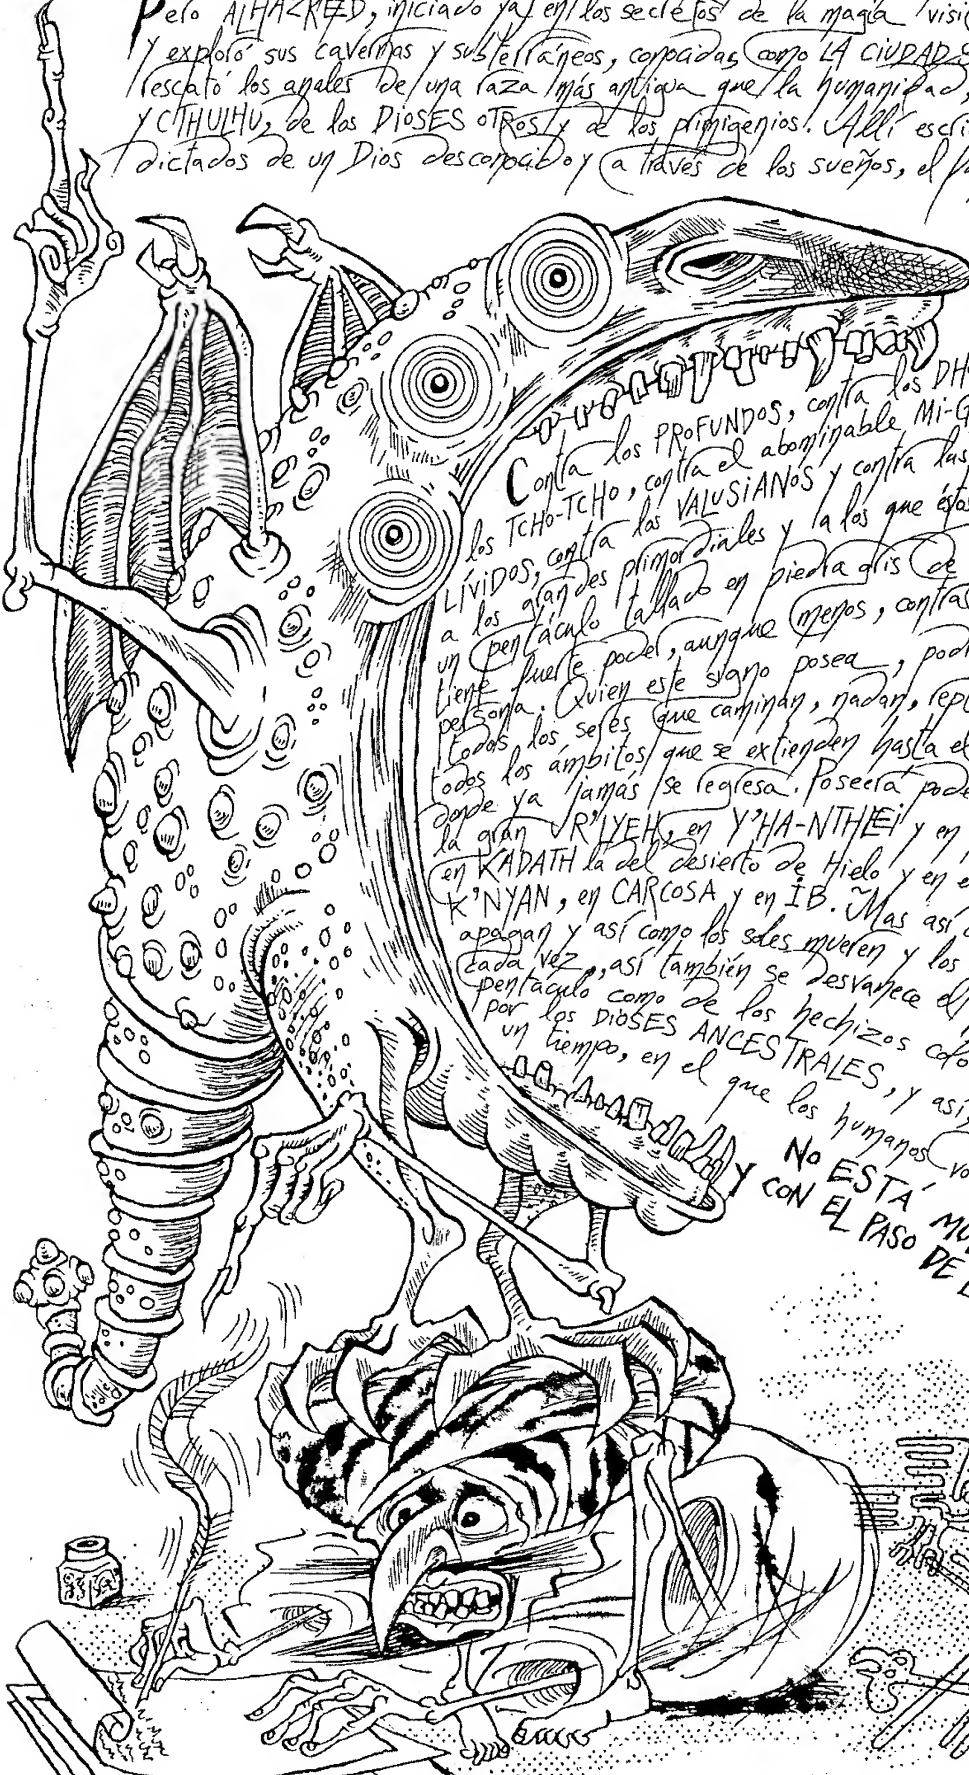 Pero ALHAZRED, iniciado ya en los secretos de la magia visi
y exploró sus cavernas y subterráneos, conocidas como LA CIUDAD S
rescató los anales de una raza más antigua que la humanidad,
y CTHULHU, de los DIOSES OTROS y de los primigenios. Allí escri
dictados de un Dios desconocido y a través de los sueños, el
Contra los PROFUNDOS, contra los DH
los TCHO-TCHO, contra el abominable MI-G
LÍVIDOS, contra los VALUSIANOS y contra las
a los grandes primordiales y a los que éstos
un pentáculo tallado en piedra gris de
tiene fuerte poder, aunque menos, contra
persona. Quien este signo posea, pod
todos los seres que caminan, nadan, rep
todos los ámbitos que se extienden hasta el
donde ya jamás se regresa. Poseerá pode
la gran R'LYEH, en Y'HA-NTHLEI y en
en KADATH la del desierto de Hielo y en e
K'NYAN, en CARCOSA y en IB. Mas así
apagan y así como los soles mueren y los
cada vez, así también se desvanece el
pentáculo como de los hechizos colo
por los DIOSES ANCESTRALES, y así
un tiempo, en el que los humanos vo
NO ESTÁ MU
Y CON EL PASO DE